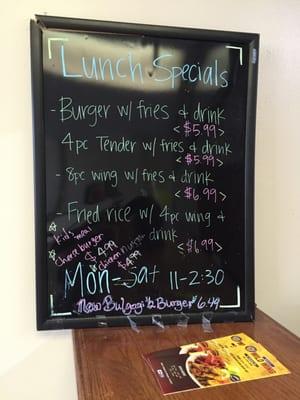 Lunch Specials
- Burger w/ fries & drink
<$5.99>
4pc Tender w/ fries & drink
<$5.99>
- 8pc wing w/ fries & drink
<$6.99>
- Fried rice w/ 4pc wing &
drink
<$6.99>
Kid's meal
cheese burger
$4.99
chicken nugget
$4.99
Mon-Sat 11-2:30
New Bulgogi Burger $6.49